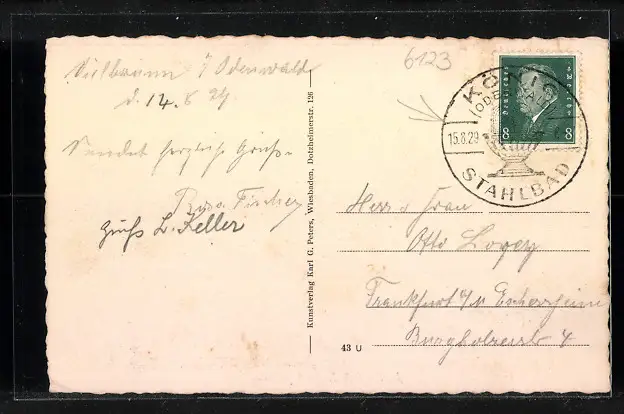 i/Odenwald
d. 14.8.29
Sendet herzliche Grüße
Fischer
Grüße L. Keller
Kunstverlag Karl G. Peters, Wiesbaden, Dotzheimerstr. 126
43 U
6123
KÖNIG
(ODENWALD)
15.8.29
STAHLBAD
Deutsches Reich
8 8
Herr u Frau
Otto
Frankfurt a/M Eschersheim
4